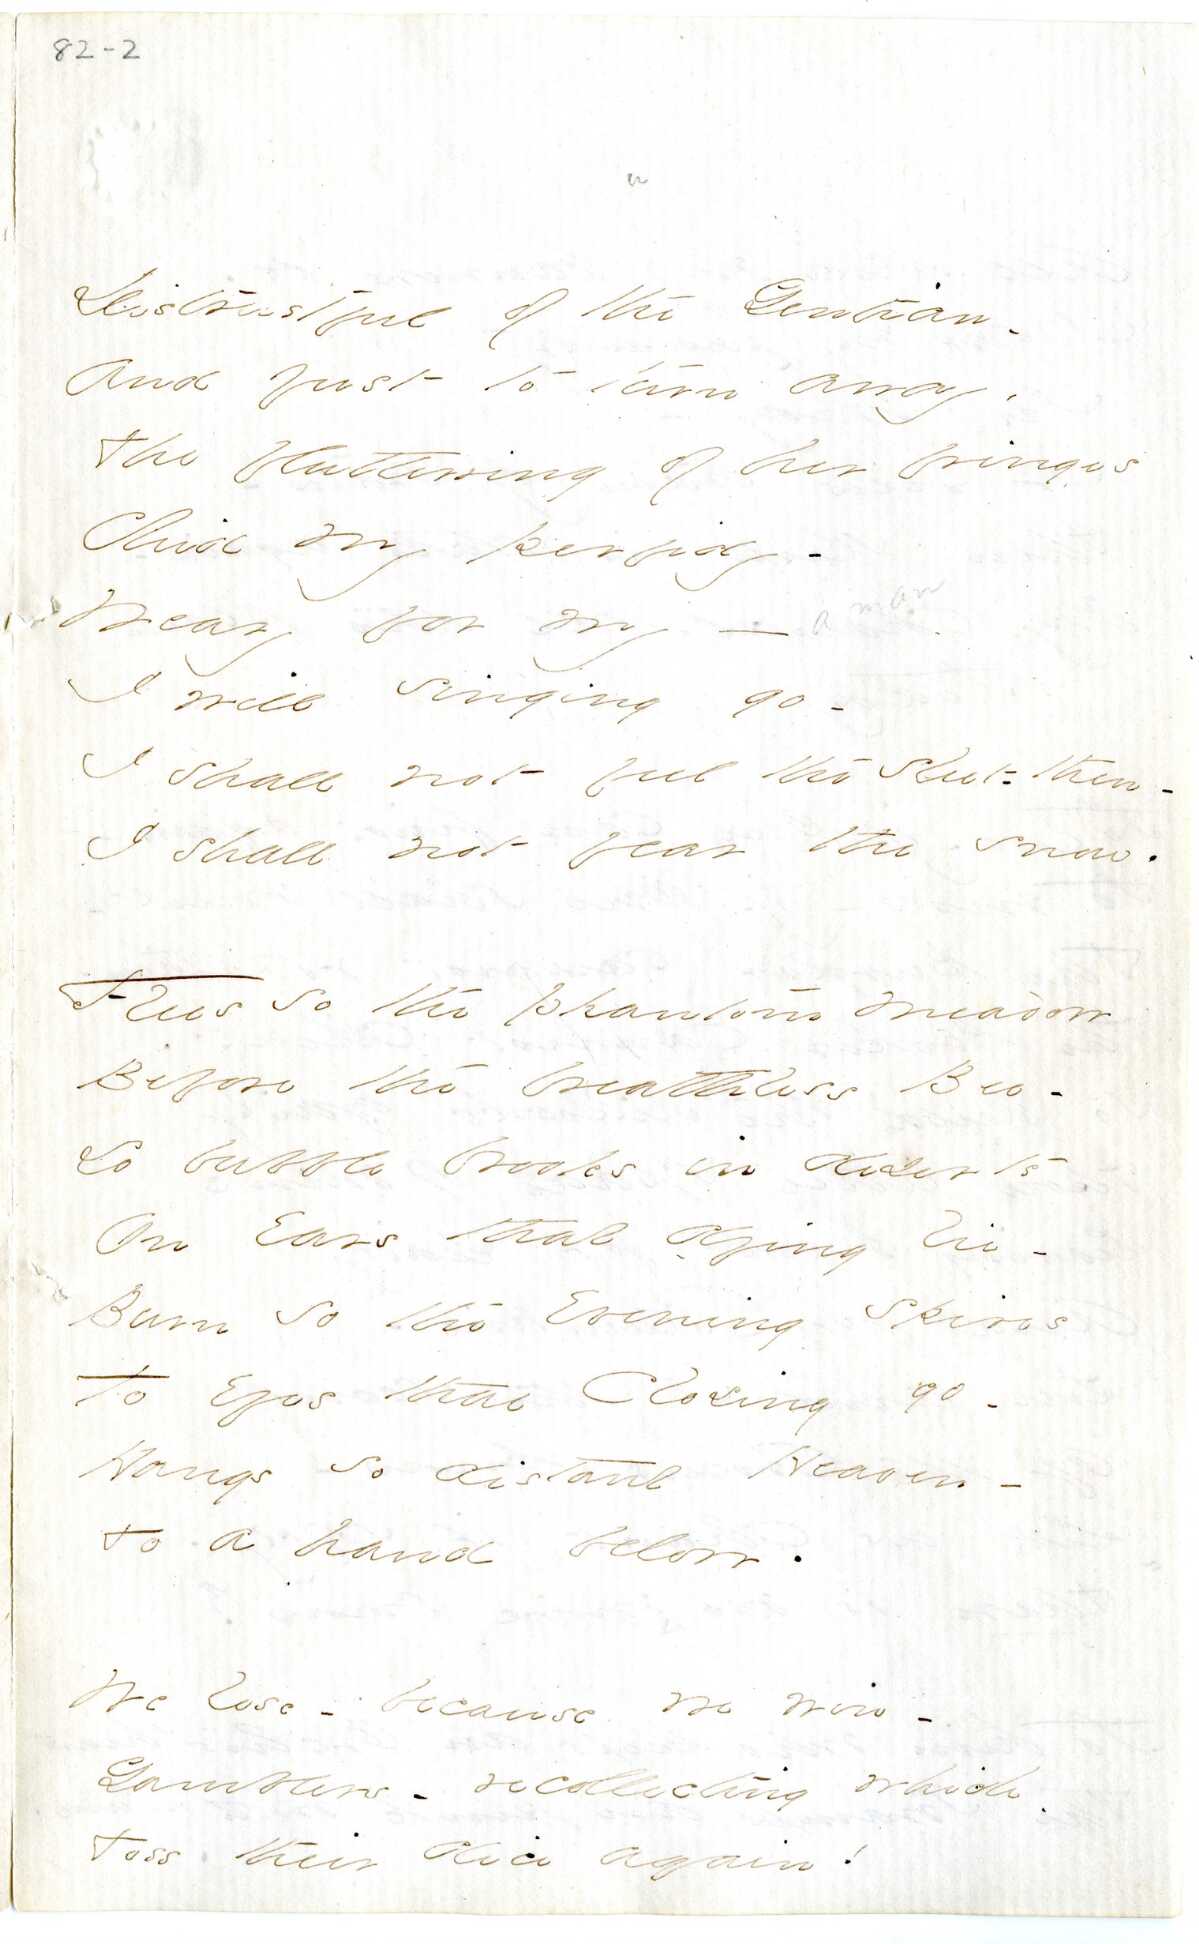 82-2
Distrustful of the Gentian -
And just to turn away,
The fluttering of her fringes
Chid my perfidy -
Weary for my — a man
I will singing go -
I shall not feel the sleet - then -
I shall not fear the snow.
Flees so the phantom meadow
Before the breathless Bee -
So bubble brooks in deserts
On Ears that dying lie -
Burn so the Evening Spires
To Eyes that Closing go -
Hangs so distant Heaven -
To a hand below.
We lose - because we win -
Gamblers - recollecting which
Toss their dice again!